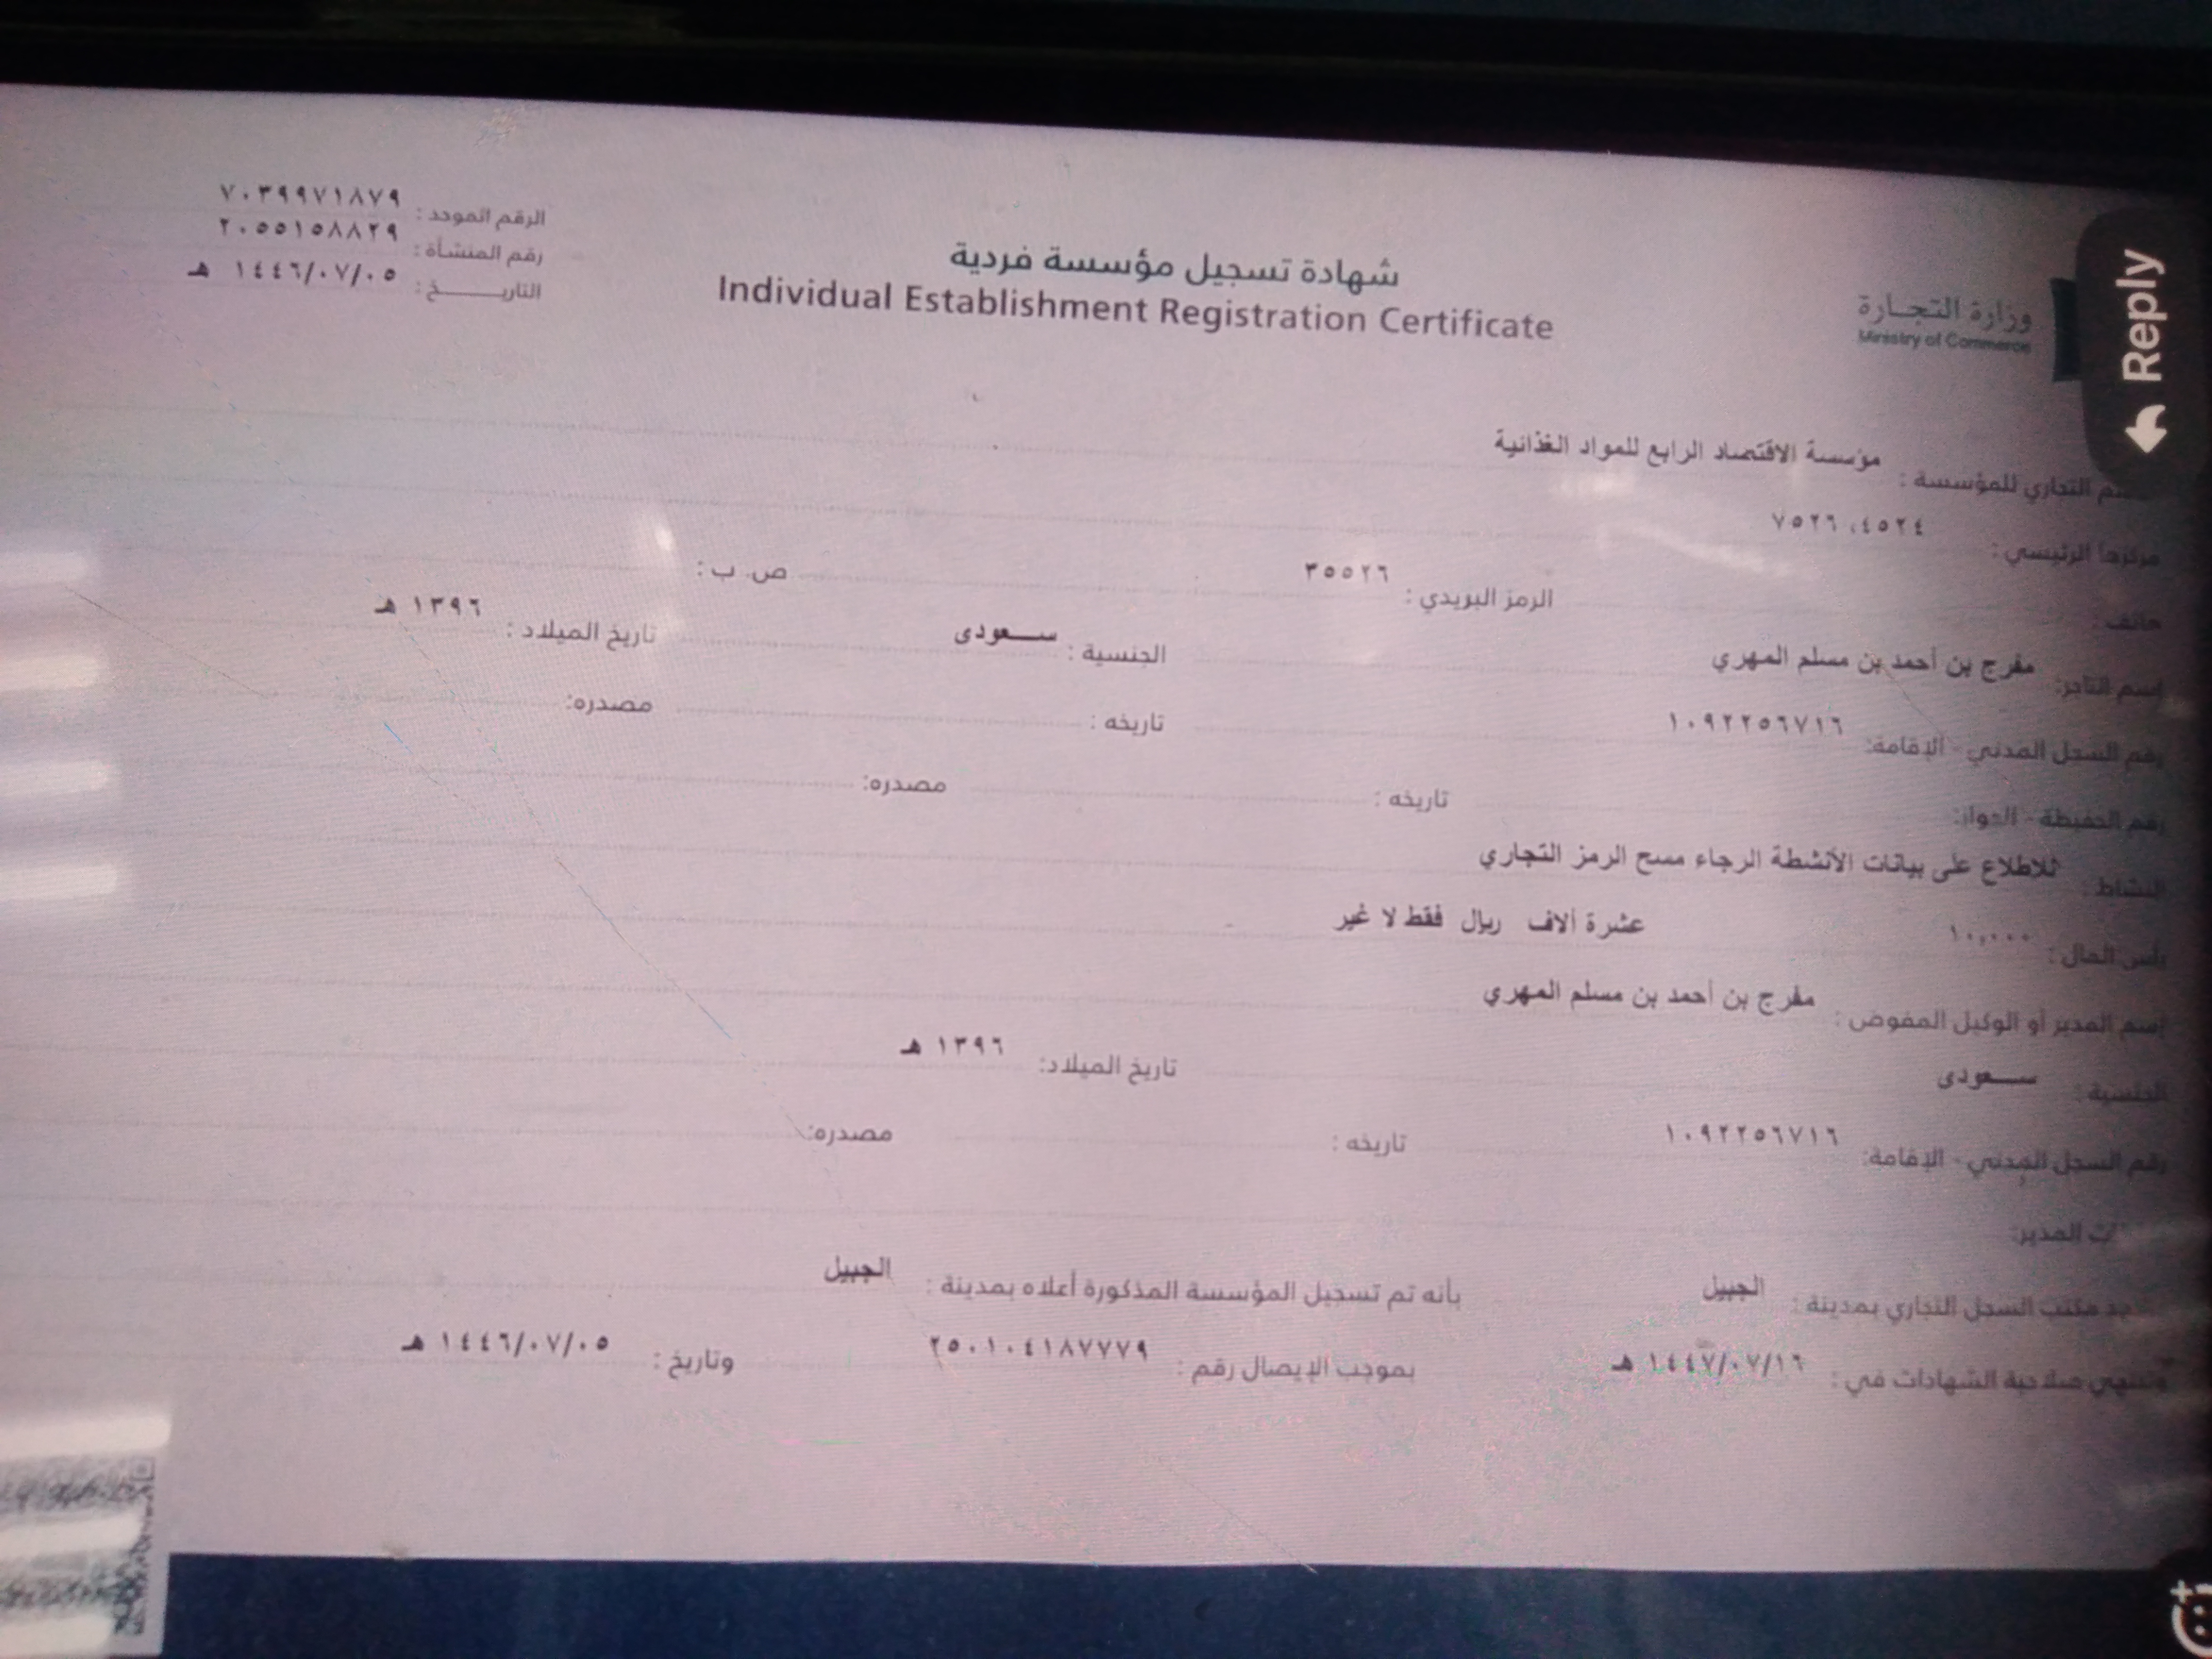 وزارة التجارة
Ministry of Commerce
شهادة تسجيل مؤسسة فردية
Individual Establishment Registration Certificate
الرقم الموحد : ٧٠٣٩٩٧١٨٧٩
رقم المنشأة : ٢٠٥٥١٥٨٨٢٩
التاريــــخ : ١٤٤٦/٠٧/٠٥ هـ
التجاري للمؤسسة : مؤسسة الاقتصاد الرابع للمواد الغذائية
مركزها الرئيسي : ٤٥٢٤، ٧٥٢٦
هاتف : الرمز البريدي : ٣٥٥٢٦ ص. ب :
إسم التاجر: مفرج بن أحمد بن مسلم المهري الجنسية : سعودى تاريخ الميلاد : ١٣٩٦ هـ
رقم السجل المدني - الإقامة: ١٠٩٢٢٥٦٧١٦ تاريخه : مصدره:
رقم الحفيظة - الجواز: تاريخه : مصدره:
النشاط : للاطلاع على بيانات الأنشطة الرجاء مسح الرمز التجاري
رأس المال : ١٠,٠٠٠ عشرة ألاف ريال فقط لا غير
إسم المدير أو الوكيل المفوض : مفرج بن أحمد بن مسلم المهري
الجنسية : سعودى تاريخ الميلاد: ١٣٩٦ هـ
رقم السجل المدني - الإقامة: ١٠٩٢٢٥٦٧١٦ تاريخه : مصدره:
المدير:
مكتب السجل التجاري بمدينة : الجبيل بأنه تم تسجيل المؤسسة المذكورة أعلاه بمدينة : الجبيل
وتنتهي صلاحية الشهادات في : ١٤٤٧/٠٧/١٦ هـ بموجب الإيصال رقم : ٢٥٠١٠٤١٨٧٧٧٩ وتاريخ : ١٤٤٦/٠٧/٠٥ هـ
Reply